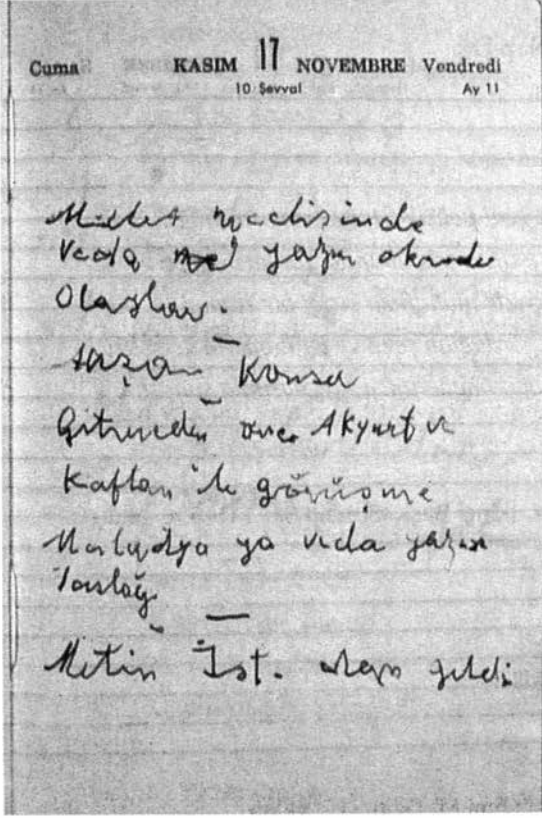 Cuma KASIM 17 NOVEMBRE Vendredi
10 Şevval Ay 11
Millet meclisinde
Veda yazısı okundu
Olaylar.
Konsey
Gitmeden önce Akyurt ve
Kaftan 'la görüşme
ya veda yazısı
Taslağı
Metin İst. dan geldi